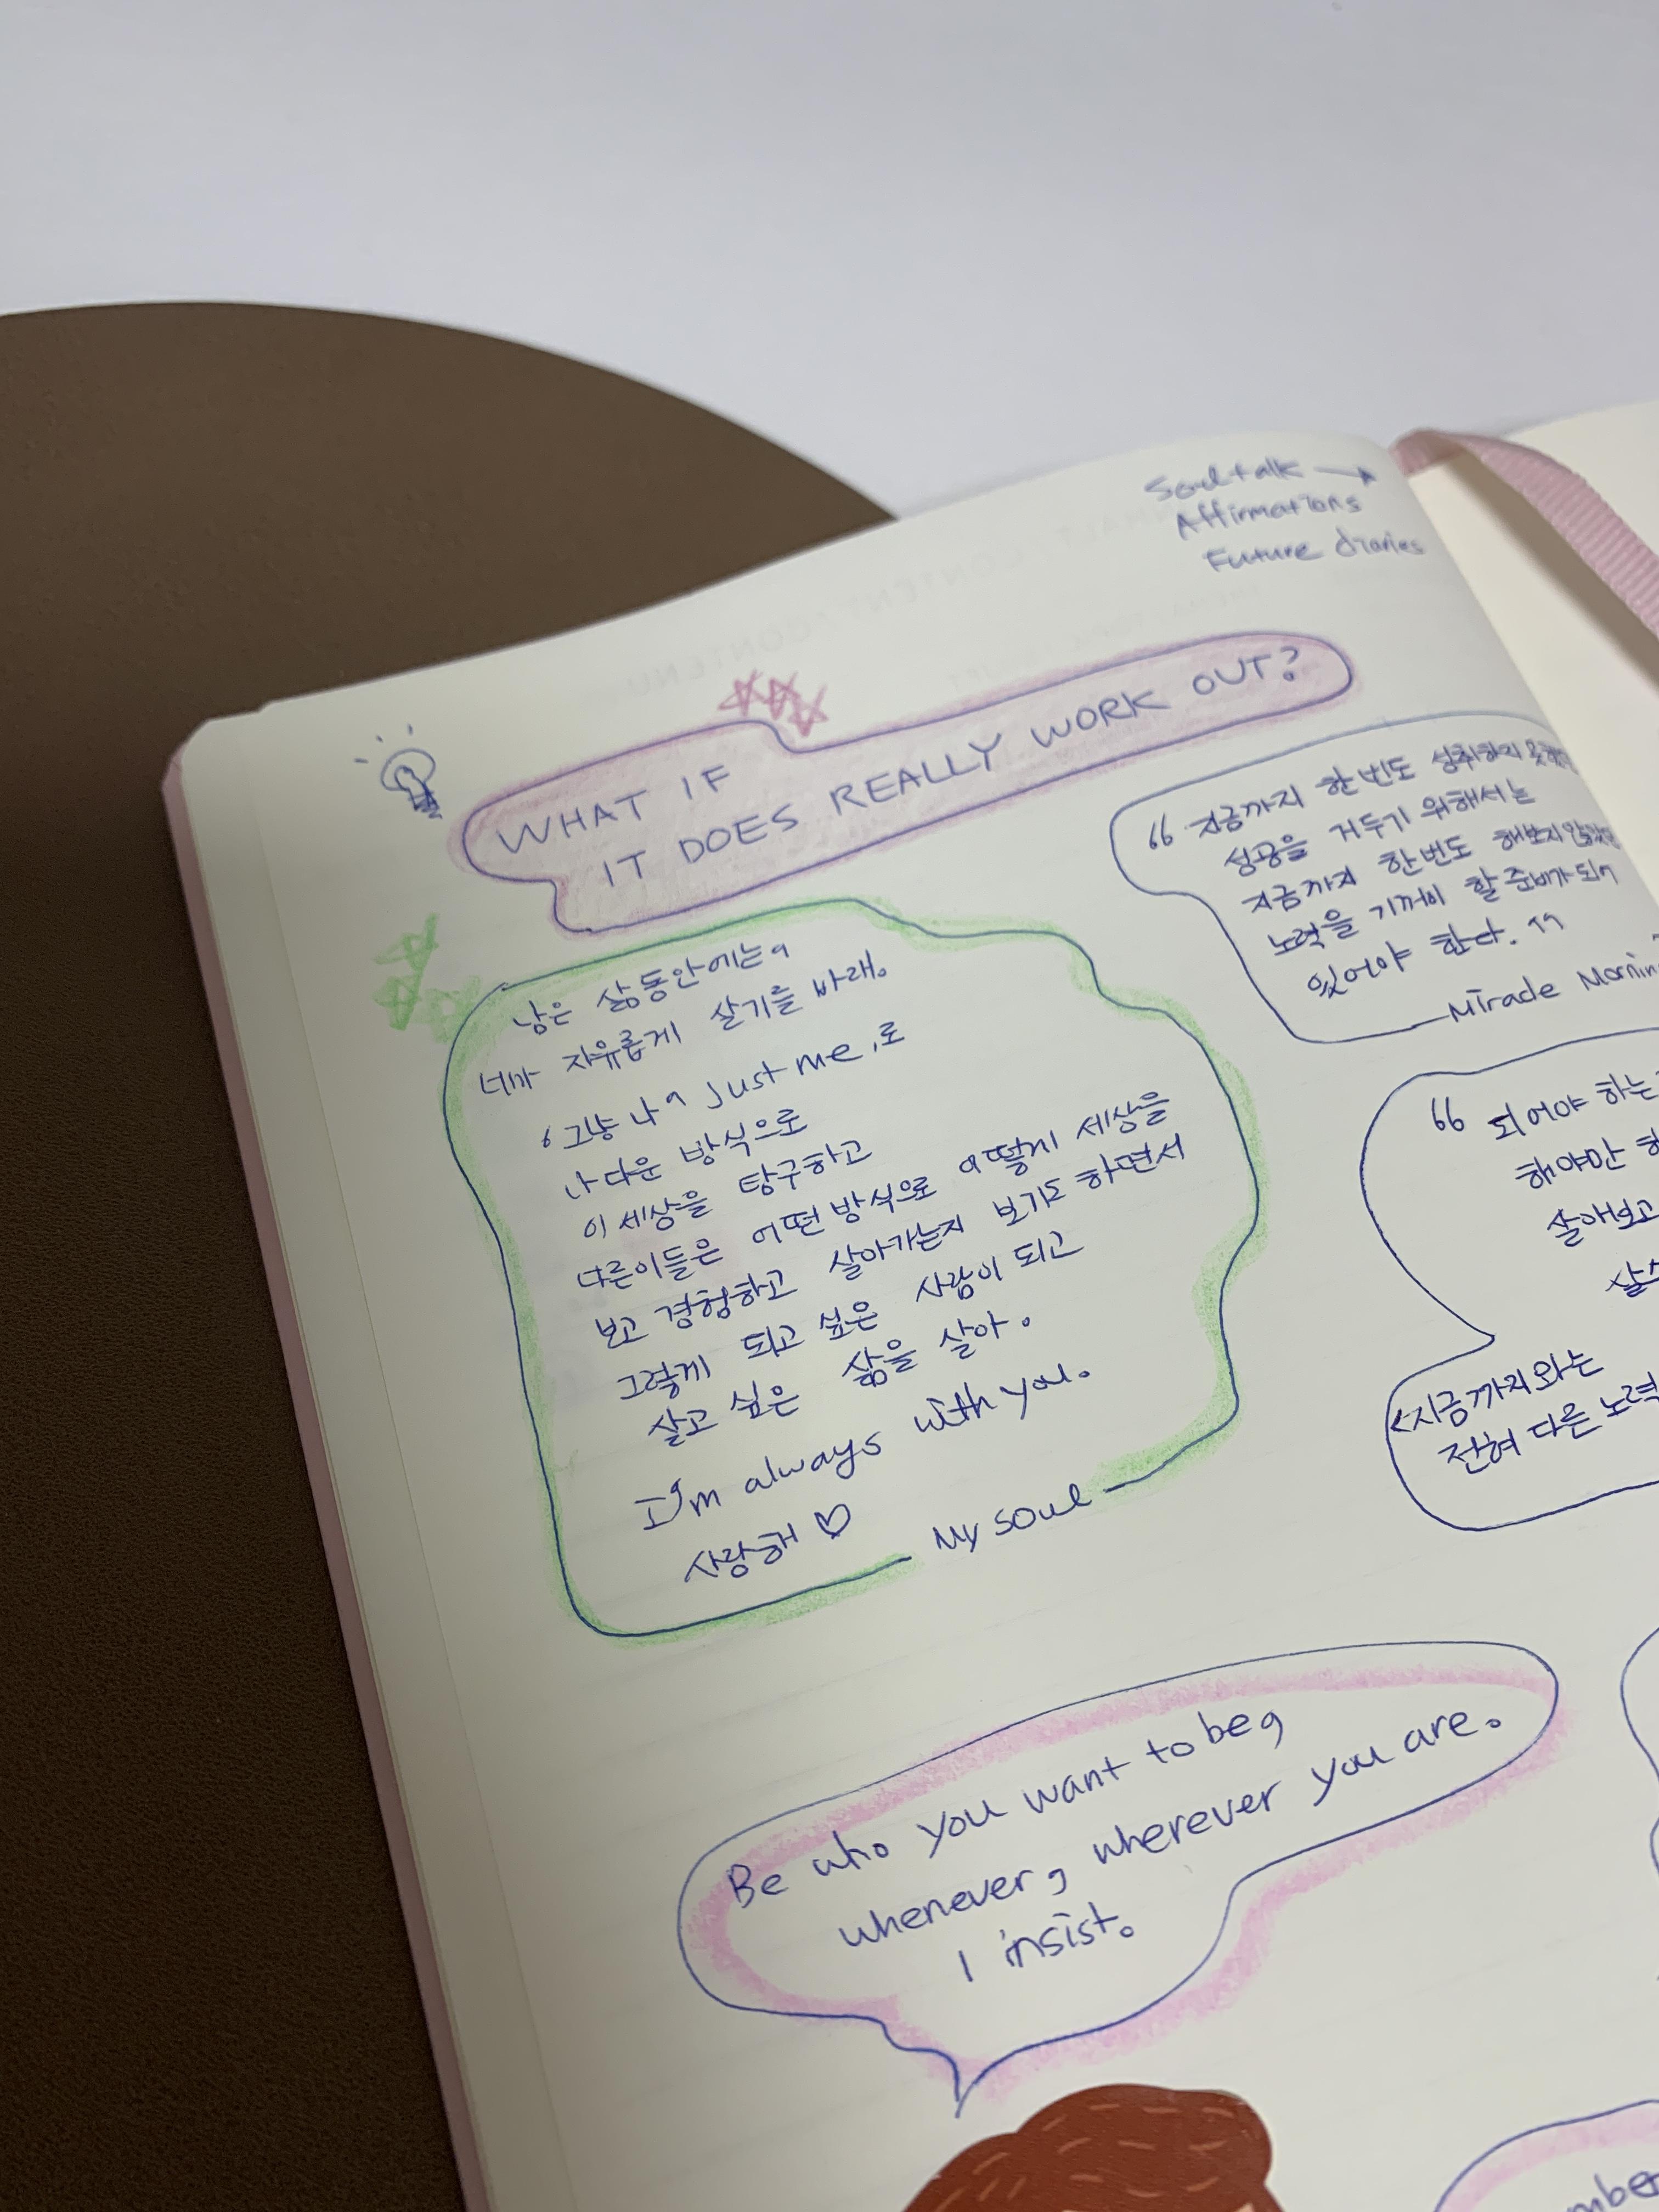 Soul talk →
Affirmations
Future diaries
WHAT IF
IT DOES REALLY WORK OUT?
남은 삶동안에는,
네가 자유롭게 살기를 바래.
'그냥 나, Just me'로
나다운 방식으로
이 세상을 탐구하고
다른이들은 어떤 방식으로 어떻게 세상을
보고 경험하고 살아가는지 보기도 하면서
그렇게 되고 싶은 사람이 되고
살고 싶은 삶을 살아.
I'm always with you.
사랑해 ♡
My soul
"지금까지 한 번도 성취하지
성공을 거두기 위해서는
지금까지 한번도 해보지
노력을 기꺼이 할 준비가 되어
있어야 한다."
" 되어야 하는
해야만
살아보고
<지금까지와는
전혀 다른 노력
Be who you want to be,
whenever, wherever you are.
I insist.